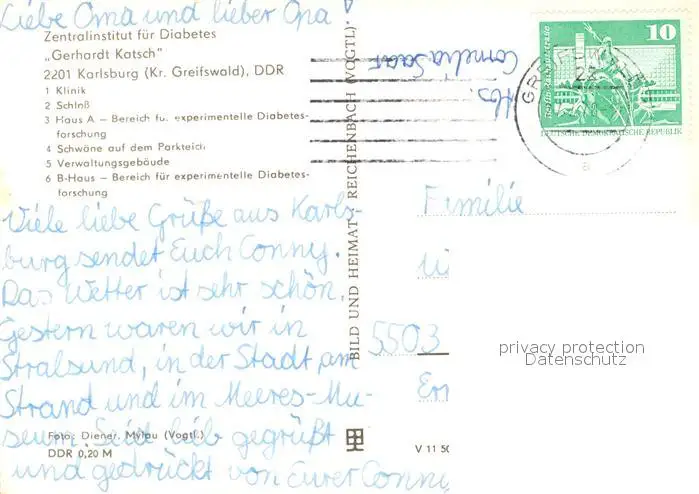 Liebe Oma und lieber Opa !
Zentralinstitut für Diabetes
„Gerhardt Katsch"
2201 Karlsburg (Kr. Greifswald), DDR
1 Klinik
2 Schloß
3 Haus A – Bereich für experimentelle Diabetes-
forschung
4 Schwäne auf dem Parkteich
5 Verwaltungsgebäude
6 B-Haus – Bereich für experimentelle Diabetes-
forschung
Viele liebe Grüße aus Karls-
burg sendet Euch Conny.
Das Wetter ist sehr schön.
Gestern waren wir in
Stralsund, in der Stadt, am
Strand und im Meeres-Mu-
seum. Seid lieb gegrüßt
und gedrückt von Eurer Conny
Foto: Diener, Mylau (Vogtl.)
DDR 0,20 M
BILD UND HEIMAT · REICHENBACH (VOGTL)
V 11 50
Abs.
Cornelia
10
DEUTSCHE DEMOKRATISCHE REPUBLIK
22
a
Familie
5503
privacy protection
Datenschutz